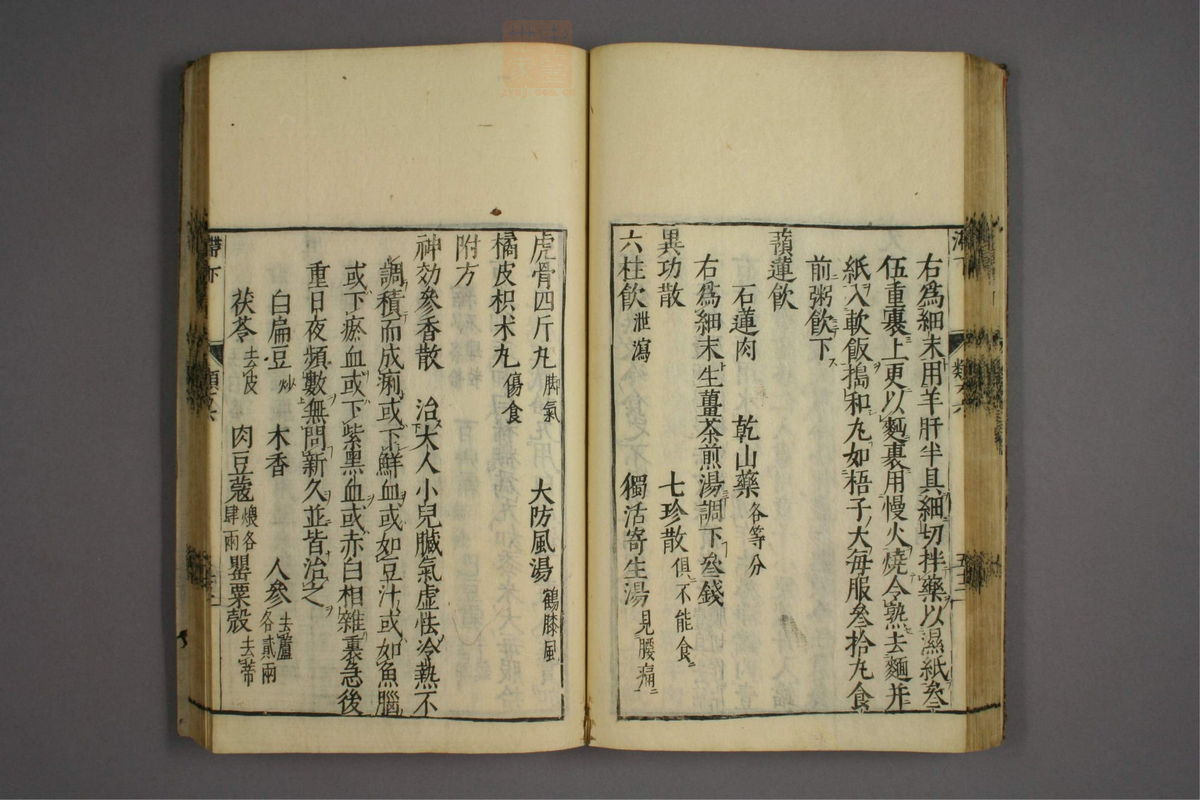 右爲細末用羊肝半具細切拌藥以濕紙叄
伍重裹上更以麪裹用慢火燒令熟去麵并
紙入軟飯搗和丸如梧子大每服叄拾丸食
前粥飲下
蓮飲
石蓮肉 乾山藥各等分
右爲細末生薑茶煎湯調下叄錢
異功散 七珍散俱不能食
六柱飲泄瀉 獨活寄生湯見腰痛
虎骨四斤丸脚氣 大防風湯鶴膝風
橘皮枳朮丸傷食
附方
神効參香散 治大人小兒臟氣虛怯冷熱不
調積而成痢或下鮮血或如豆汁或如魚腦
或下瘀血或下紫黑血或赤白相雜裏急後
重日夜頻數無問新久並皆治之
白扁豆炒 木香 人參去蘆各貳兩
茯苓去皮 肉豆蔻煨各肆兩 罌粟殼去蒂
帶下